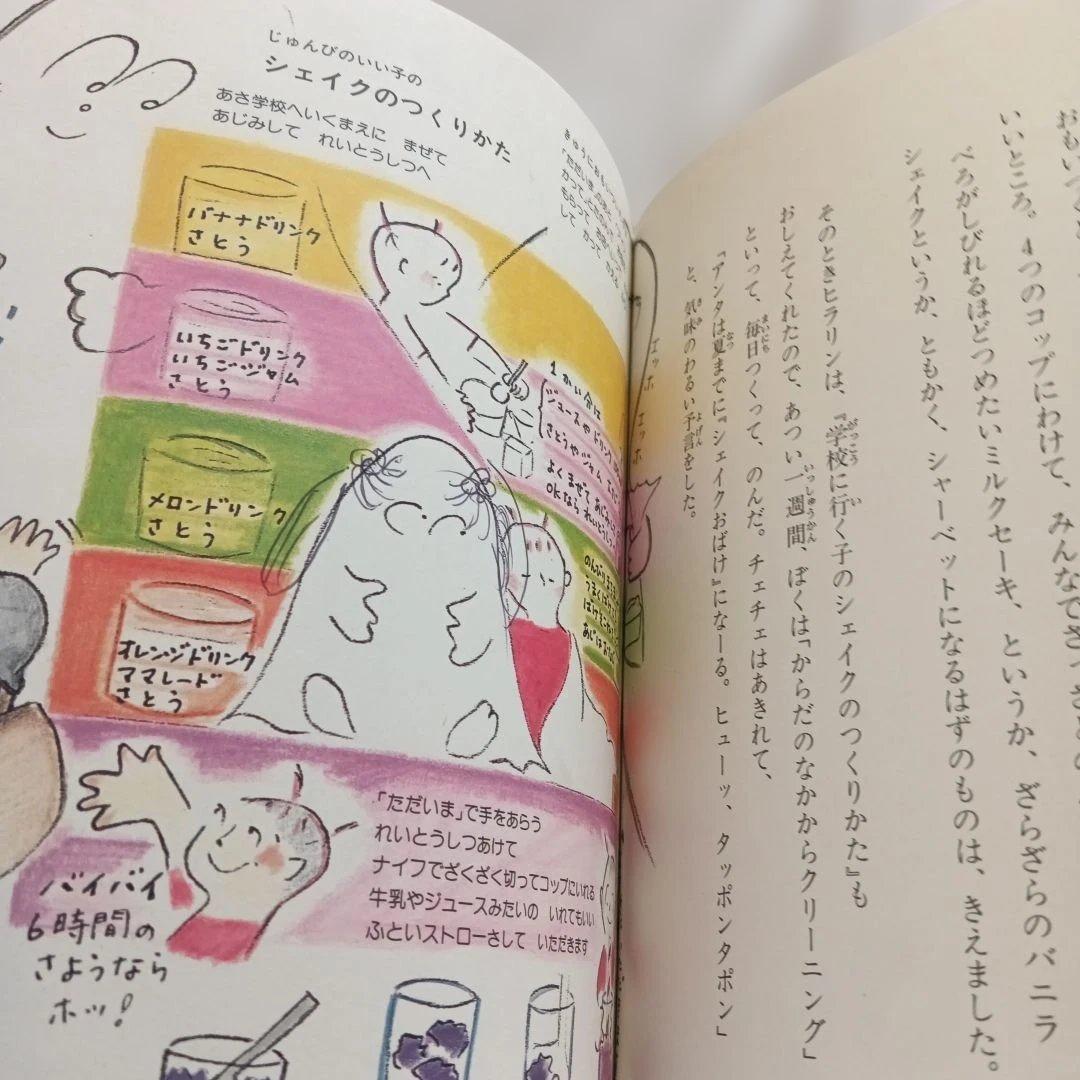 じゅんびのいい子の
シェイクのつくりかた
あさ学校へいくまえに　まぜて
あじみして　れいとうしつへ
バナナドリンク
さとう
いちごドリンク
いちごジャム
さとう
メロンドリンク
さとう
オレンジドリンク
ママレード
さとう
「ただいま」
かって
もらって
して　かって
1かい分は
ジュースやドリン
さとうやジャム
よくまぜて　あじみし
OKなられいとうし
バイバイ
6時間の
さようなら
ホッ!
「ただいま」で手をあらう
れいとうしつあけて
ナイフでざくざく切ってコップにいれる
牛乳やジュースみたいの　いれてもいい
ふといストローさして　いただきます
いいところ。4つのコップにわけて、みんなで
べろがしびれるほどつめたいミルクセーキ、というか、ざらざらのバニラ
シェイクというか、ともかく、シャーベットになるはずのものは、きえました。
そのときヒラリンは、『学校に行く子のシェイクのつくりかた』も
おしえてくれたので、あつい一週間、ぼくは「からだのなかからクリーニング」
といって、毎日つくって、のんだ。チェチェはあきれて、
「アンタは夏までに『シェイクおばけ』になーる。ヒューッ、タッポンタポン」
と、気味のわるい予言をした。
エッホ　エッホ